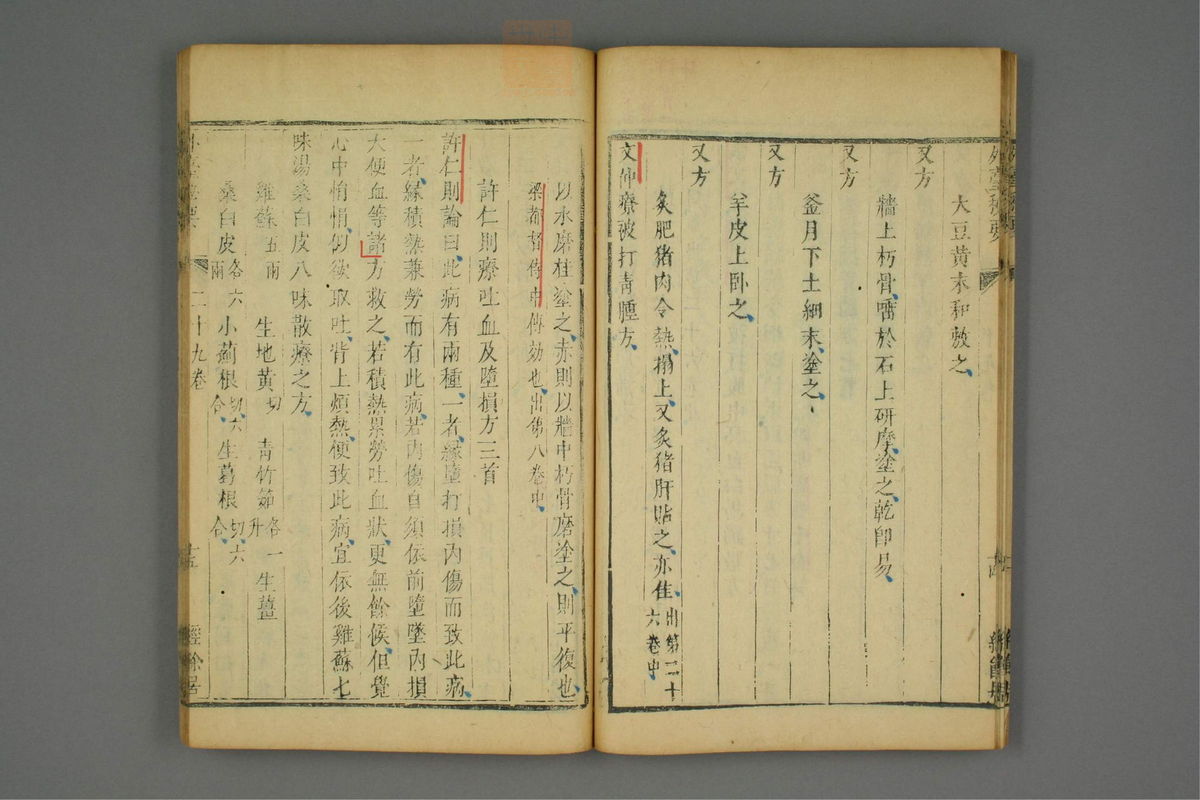 大豆黃末和敷之
又方
牆上朽骨唾於石上研摩塗之乾卽易
又方
釜月下土細末塗之
又方
羊皮上臥之
又方
炙肥猪肉令熱搨上又炙猪肝貼之亦佳出第二十六卷中
文仲療被打靑腫方
以水磨桂塗之赤則以牆中朽骨磨塗之則平復也
梁都督侍中傳効也出第八卷中
許仁則療吐血及墮損方三首
許仁則論曰此病有兩種一者緣墮打損內傷而致此病
一者緣積熱兼勞而有此病若內傷自須依前墮墜內損
大便血等諸方救之若積熱累勞吐血狀更無餘候但覺
心中悁悁似欲取吐背上煩熱便致此病宜依後雞蘇七
味湯桑白皮八味散療之方
雞蘇五兩 生地黃切 靑竹筎各一升 生薑
桑白皮各六兩 小薊根切六合 生葛根切六合
二十九卷
十五
經餘居